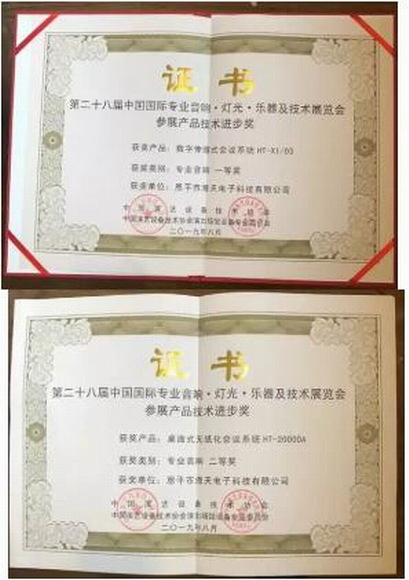 证书
第二十八届中国国际专业音响·灯光·乐器及技术展览会
参展产品技术进步奖
获奖产品：数字传递式会议系统 HT-X1/D3
获奖类别：专业音响 一等奖
获奖单位：恩平市海天电子科技有限公司
中国演艺设备技术协会
中国演艺设备技术协会演出场馆设备专业委员会
二〇一九年八月
证书
第二十八届中国国际专业音响·灯光·乐器及技术展览会
参展产品技术进步奖
获奖产品：桌面式无纸化会议系统 HT-20000A
获奖类别：专业音响 二等奖
获奖单位：恩平市海天电子科技有限公司
中国演艺设备技术协会
中国演艺设备技术协会演出场馆设备专业委员会
二〇一九年八月